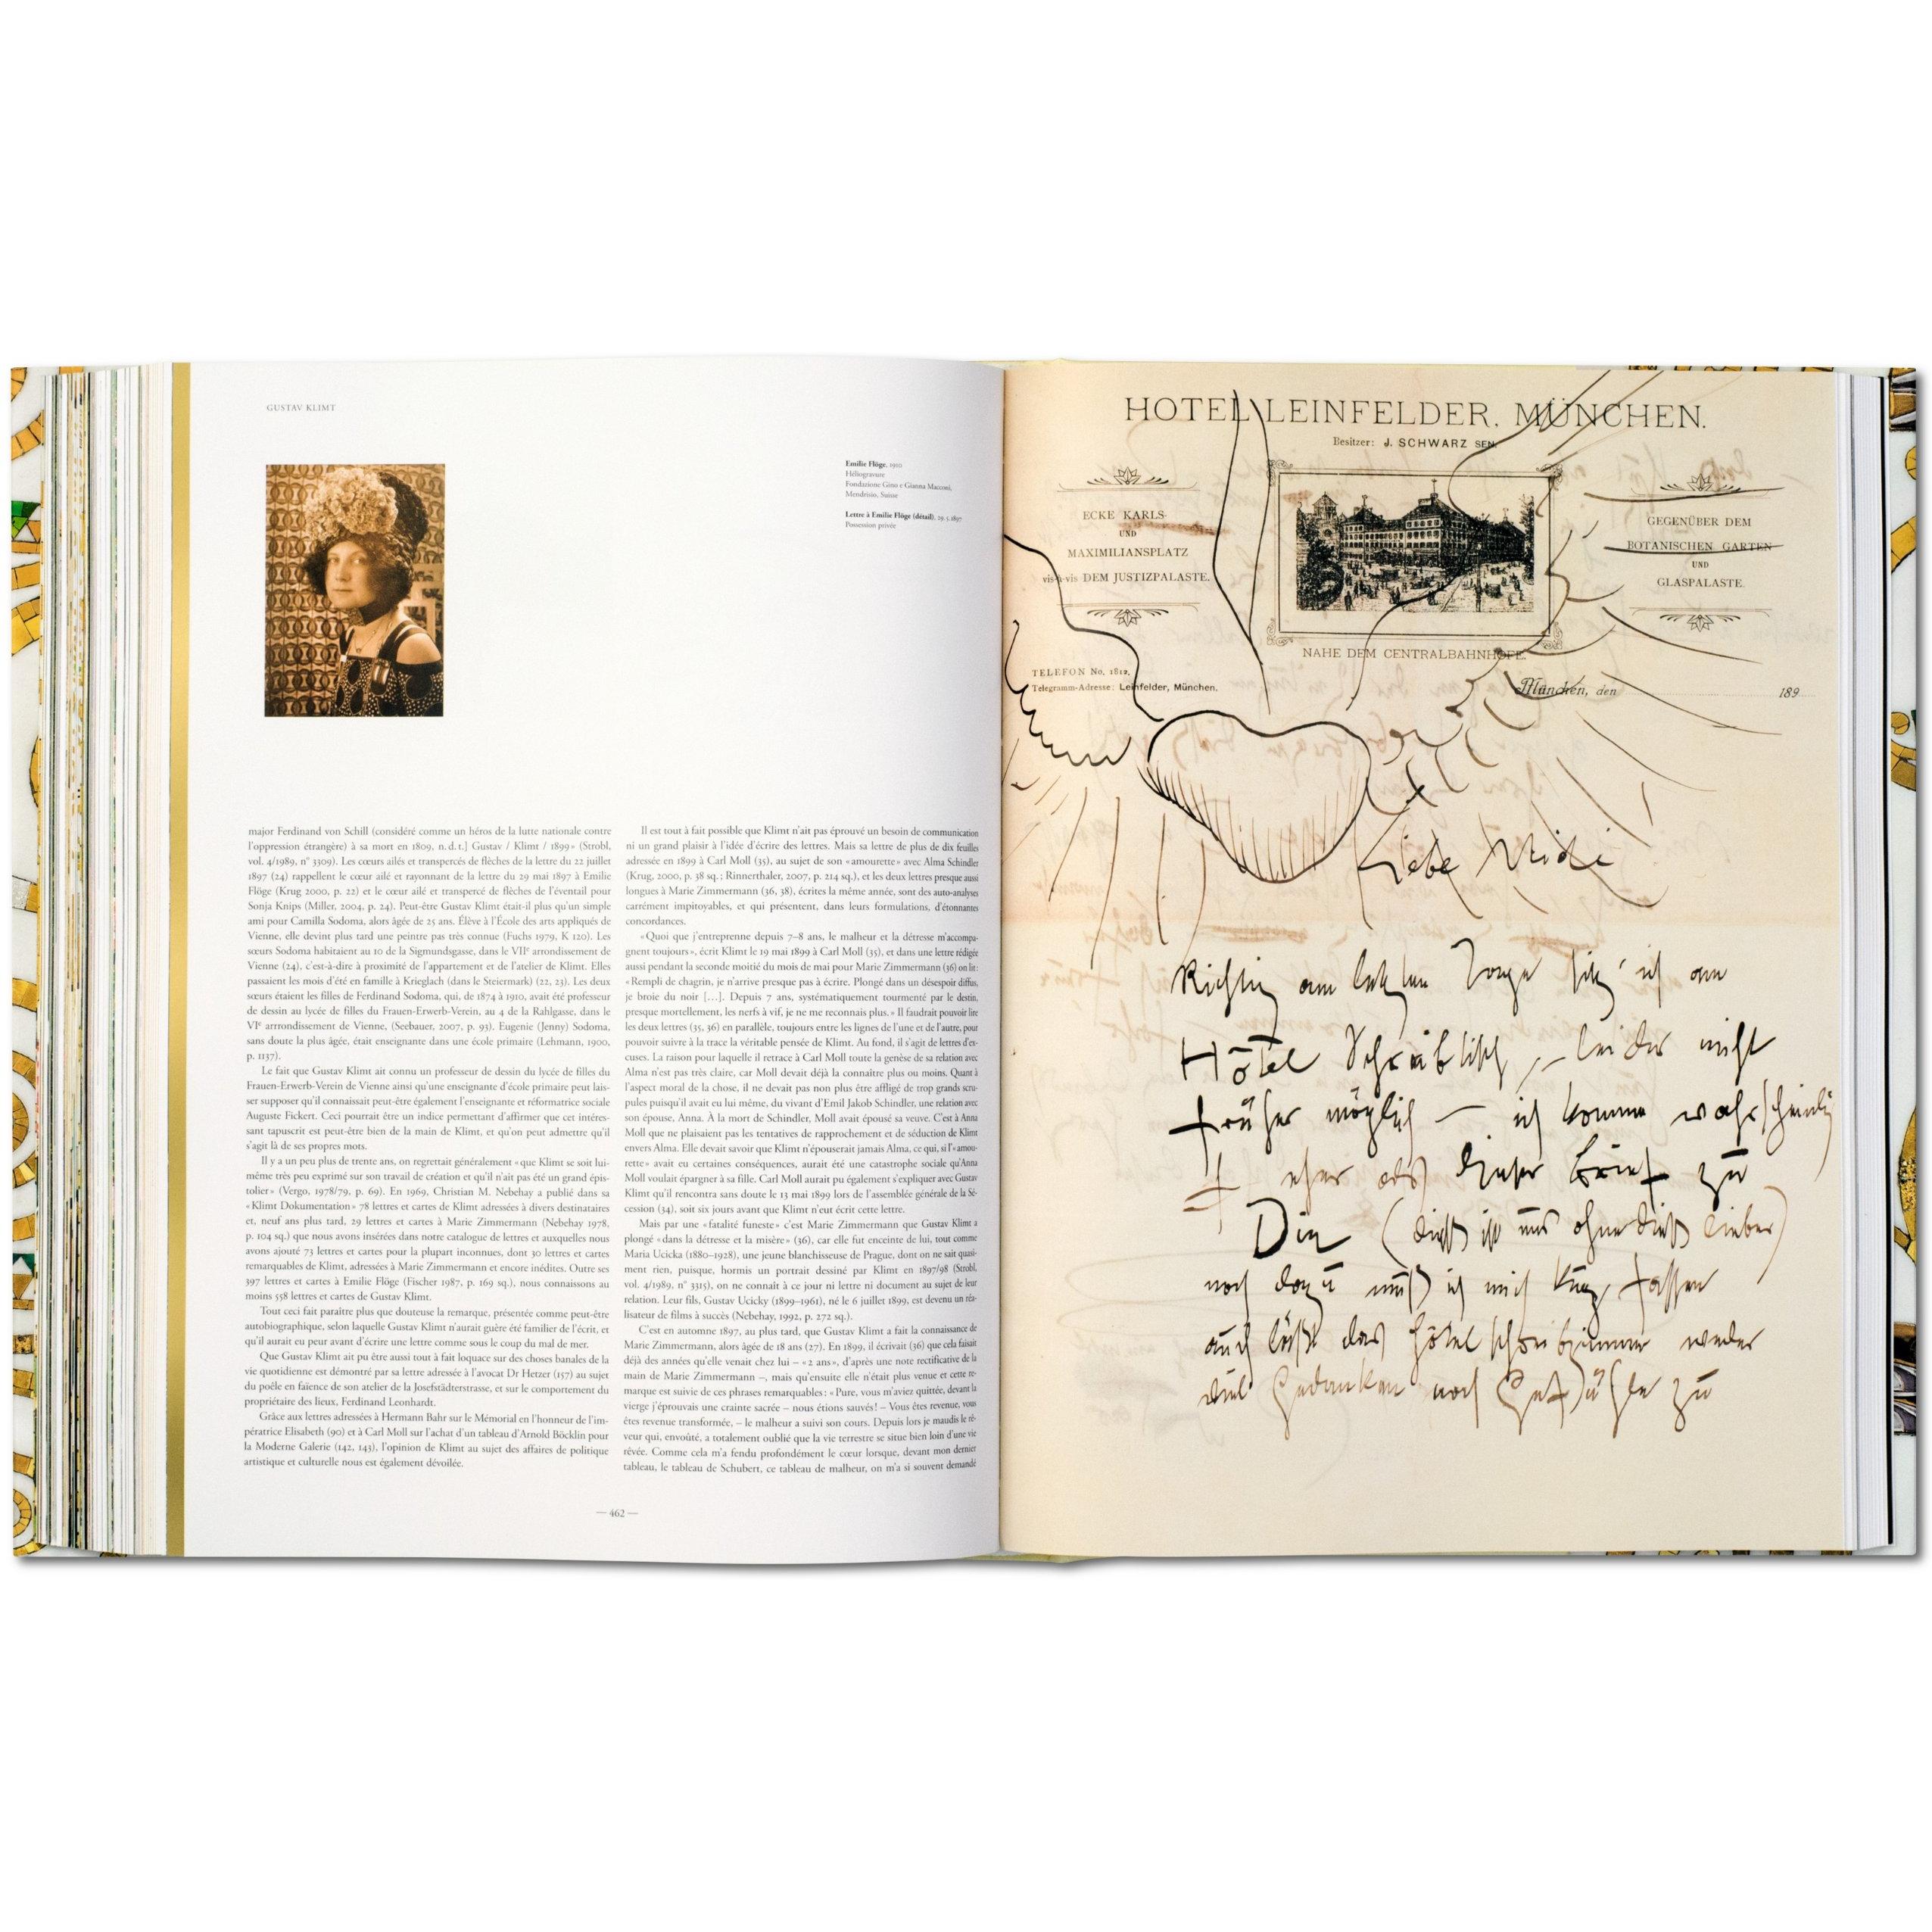 GUSTAV KLIMT
Emilie Flöge, 1910
Héliogravure
Fondazione Gino e Gianna Macconi,
Mendrisio, Suisse
Lettre à Emilie Flöge (détail), 29.5.1897
Possession privée
major Ferdinand von Schill (considéré comme un héros de la lutte nationale contre
l'oppression étrangère) à sa mort en 1809, n.d.t.] Gustav / Klimt / 1899» (Strobl,
vol. 4/1989, n° 3309). Les cœurs ailés et transpercés de flèches de la lettre du 22 juillet
1897 (24) rappellent le cœur ailé et rayonnant de la lettre du 29 mai 1897 à Emilie
Flöge (Krug 2000, p. 22) et le cœur ailé et transpercé de flèches de l'éventail pour
Sonja Knips (Miller, 2004, p. 24). Peut-être Gustav Klimt était-il plus qu'un simple
ami pour Camilla Sodoma, alors âgée de 25 ans. Élève à l'École des arts appliqués de
Vienne, elle devint plus tard une peintre pas très connue (Fuchs 1979, K 120). Les
sœurs Sodoma habitaient au 10 de la Sigmundsgasse, dans le VIIe arrondissement de
Vienne (24), c'est-à-dire à proximité de l'appartement et de l'atelier de Klimt. Elles
passaient les mois d'été en famille à Krieglach (dans le Steiermark) (22, 23). Les deux
sœurs étaient les filles de Ferdinand Sodoma, qui, de 1874 à 1910, avait été professeur
de dessin au lycée de filles du Frauen-Erwerb-Verein, au 4 de la Rahlgasse, dans le
VIe arrrondissement de Vienne, (Seebauer, 2007, p. 93). Eugenie (Jenny) Sodoma,
sans doute la plus âgée, était enseignante dans une école primaire (Lehmann, 1900,
p. 1137).
Le fait que Gustav Klimt ait connu un professeur de dessin du lycée de filles du
Frauen-Erwerb-Verein de Vienne ainsi qu'une enseignante d'école primaire peut lais-
ser supposer qu'il connaissait peut-être également l'enseignante et réformatrice sociale
Auguste Fickert. Ceci pourrait être un indice permettant d'affirmer que cet intéres-
sant tapuscrit est peut-être bien de la main de Klimt, et qu'on peut admettre qu'il
s'agit là de ses propres mots.
Il y a un peu plus de trente ans, on regrettait généralement «que Klimt se soit lui-
même très peu exprimé sur son travail de création et qu'il n'ait pas été un grand épis-
tolier» (Vergo, 1978/79, p. 69). En 1969, Christian M. Nebehay a publié dans sa
«Klimt Dokumentation» 78 lettres et cartes de Klimt adressées à divers destinataires
et, neuf ans plus tard, 29 lettres et cartes à Marie Zimmermann (Nebehay 1978,
p. 104 sq.) que nous avons insérées dans notre catalogue de lettres et auxquelles nous
avons ajouté 73 lettres et cartes pour la plupart inconnues, dont 30 lettres et cartes
remarquables de Klimt, adressées à Marie Zimmermann et encore inédites. Outre ses
397 lettres et cartes à Emilie Flöge (Fischer 1987, p. 169 sq.), nous connaissons au
moins 558 lettres et cartes de Gustav Klimt.
Tout ceci fait paraître plus que douteuse la remarque, présentée comme peut-être
autobiographique, selon laquelle Gustav Klimt n'aurait guère été familier de l'écrit, et
qu'il aurait eu peur avant d'écrire une lettre comme sous le coup du mal de mer.
Que Gustav Klimt ait pu être aussi tout à fait loquace sur des choses banales de la
vie quotidienne est démontré par sa lettre adressée à l'avocat Dr Hetzer (157) au sujet
du poêle en faïence de son atelier de la Josefstädterstrasse, et sur le comportement du
propriétaire des lieux, Ferdinand Leonhardt.
Grâce aux lettres adressées à Hermann Bahr sur le Mémorial en l'honneur de l'im-
pératrice Elisabeth (90) et à Carl Moll sur l'achat d'un tableau d'Arnold Böcklin pour
la Moderne Galerie (142, 143), l'opinion de Klimt au sujet des affaires de politique
artistique et culturelle nous est également dévoilée.
Il est tout à fait possible que Klimt n'ait pas éprouvé un besoin de communication
ni un grand plaisir à l'idée d'écrire des lettres. Mais sa lettre de plus de dix feuilles
adressée en 1899 à Carl Moll (35), au sujet de son «amourette» avec Alma Schindler
(Krug, 2000, p. 38 sq.; Rinnerthaler, 2007, p. 214 sq.), et les deux lettres presque aussi
longues à Marie Zimmermann (36, 38), écrites la même année, sont des auto-analyses
carrément impitoyables, et qui présentent, dans leurs formulations, d'étonnantes
concordances.
«Quoi que j'entreprenne depuis 7–8 ans, le malheur et la détresse m'accompa-
gnent toujours», écrit Klimt le 19 mai 1899 à Carl Moll (35), et dans une lettre rédigée
aussi pendant la seconde moitié du mois de mai pour Marie Zimmermann (36) on lit:
«Rempli de chagrin, je n'arrive presque pas à écrire. Plongé dans un désespoir diffus,
je broie du noir [...]. Depuis 7 ans, systématiquement tourmenté par le destin,
presque mortellement, les nerfs à vif, je ne me reconnais plus.» Il faudrait pouvoir lire
les deux lettres (35, 36) en parallèle, toujours entre les lignes de l'une et de l'autre, pour
pouvoir suivre à la trace la véritable pensée de Klimt. Au fond, il s'agit de lettres d'ex-
cuses. La raison pour laquelle il retrace à Carl Moll toute la genèse de sa relation avec
Alma n'est pas très claire, car Moll devait déjà la connaître plus ou moins. Quant à
l'aspect moral de la chose, il ne devait pas non plus être affligé de trop grands scru-
pules puisqu'il avait eu lui même, du vivant d'Emil Jakob Schindler, une relation avec
son épouse, Anna. À la mort de Schindler, Moll avait épousé sa veuve. C'est à Anna
Moll que ne plaisaient pas les tentatives de rapprochement et de séduction de Klimt
envers Alma. Elle devait savoir que Klimt n'épouserait jamais Alma, ce qui, si l'«amou-
rette» avait eu certaines conséquences, aurait été une catastrophe sociale qu'Anna
Moll voulait épargner à sa fille. Carl Moll aurait pu également s'expliquer avec Gustav
Klimt qu'il rencontra sans doute le 13 mai 1899 lors de l'assemblée générale de la Sé-
cession (34), soit six jours avant que Klimt n'eut écrit cette lettre.
Mais par une «fatalité funeste» c'est Marie Zimmermann que Gustav Klimt a
plongé «dans la détresse et la misère» (36), car elle fut enceinte de lui, tout comme
Maria Ucicka (1880–1928), une jeune blanchisseuse de Prague, dont on ne sait quasi-
ment rien, puisque, hormis un portrait dessiné par Klimt en 1897/98 (Strobl,
vol. 4/1989, n° 3315), on ne connaît à ce jour ni lettre ni document au sujet de leur
relation. Leur fils, Gustav Ucicky (1899–1961), né le 6 juillet 1899, est devenu un réa-
lisateur de films à succès (Nebehay, 1992, p. 272 sq.).
C'est en automne 1897, au plus tard, que Gustav Klimt a fait la connaissance de
Marie Zimmermann, alors âgée de 18 ans (27). En 1899, il écrivait (36) que cela faisait
déjà des années qu'elle venait chez lui – «2 ans», d'après une note rectificative de la
main de Marie Zimmermann –, mais qu'ensuite elle n'était plus venue et cette re-
marque est suivie de ces phrases remarquables: «Pure, vous m'aviez quittée, devant la
vierge j'éprouvais une crainte sacrée – nous étions sauvés! – Vous êtes revenue, vous
êtes revenue transformée, – le malheur a suivi son cours. Depuis lors je maudis le rê-
veur qui, envoûté, a totalement oublié que la vie terrestre se situe bien loin d'une vie
rêvée. Comme cela m'a fendu profondément le cœur lorsque, devant mon dernier
tableau, le tableau de Schubert, ce tableau de malheur, on m'a si souvent demandé
— 462 —
HOTEL LEINFELDER, MÜNCHEN.
Besitzer: J. SCHWARZ SEN.
ECKE KARLS-
UND
MAXIMILIANSPLATZ
vis-à-vis DEM JUSTIZPALASTE.
GEGENÜBER DEM
BOTANISCHEN GARTEN
UND
GLASPALASTE.
NAHE DEM CENTRALBAHNHOFE.
TELEFON No. 1812.
Telegramm-Adresse: Leinfelder, München.
München, den 189
Liebe Midi
Richtig am letzten Tage sitz' ich am
Hôtel Schreibtisch, – leider nicht
früher möglich – ich komme wahrscheinlich
eher als dieser Brief zu
Dir (dieß ist mir ohnedieß lieber)
noch dazu muß ich mich kurz fassen
auch läßt das Hôtel schreibzimmer weder
viel Gedanken noch Gefühle zu